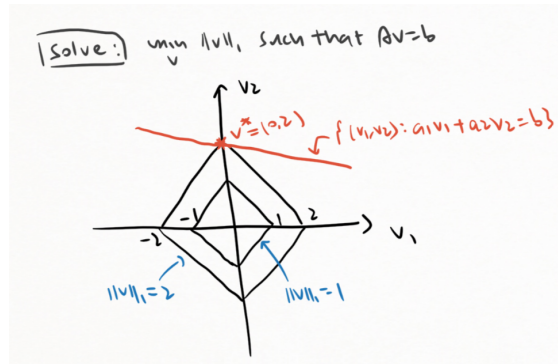 Solve: min ||v||₁ such that Av=b
v
v₂
v*=(0,2)
{(v₁,v₂): a₁v₁+a₂v₂=b}
-2 -1 1 2
v₁
||v||₁=2 ||v||₁=1